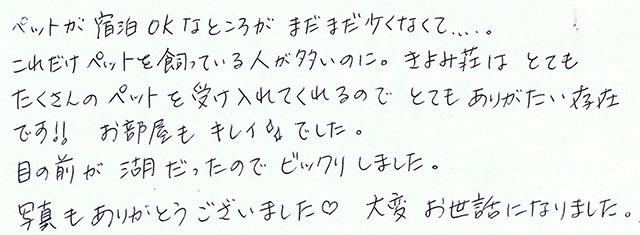 ペットが宿泊OKなところがまだまだ少くなくて.....。
これだけペットを飼っている人が多いのに。きよみ荘はとても
たくさんのペットを受け入れてくれるのでとてもありがたい存在
です!! お部屋もキレイでした。
目の前が湖だったのでビックリしました。
写真もありがとうございました♡ 大変お世話になりました。